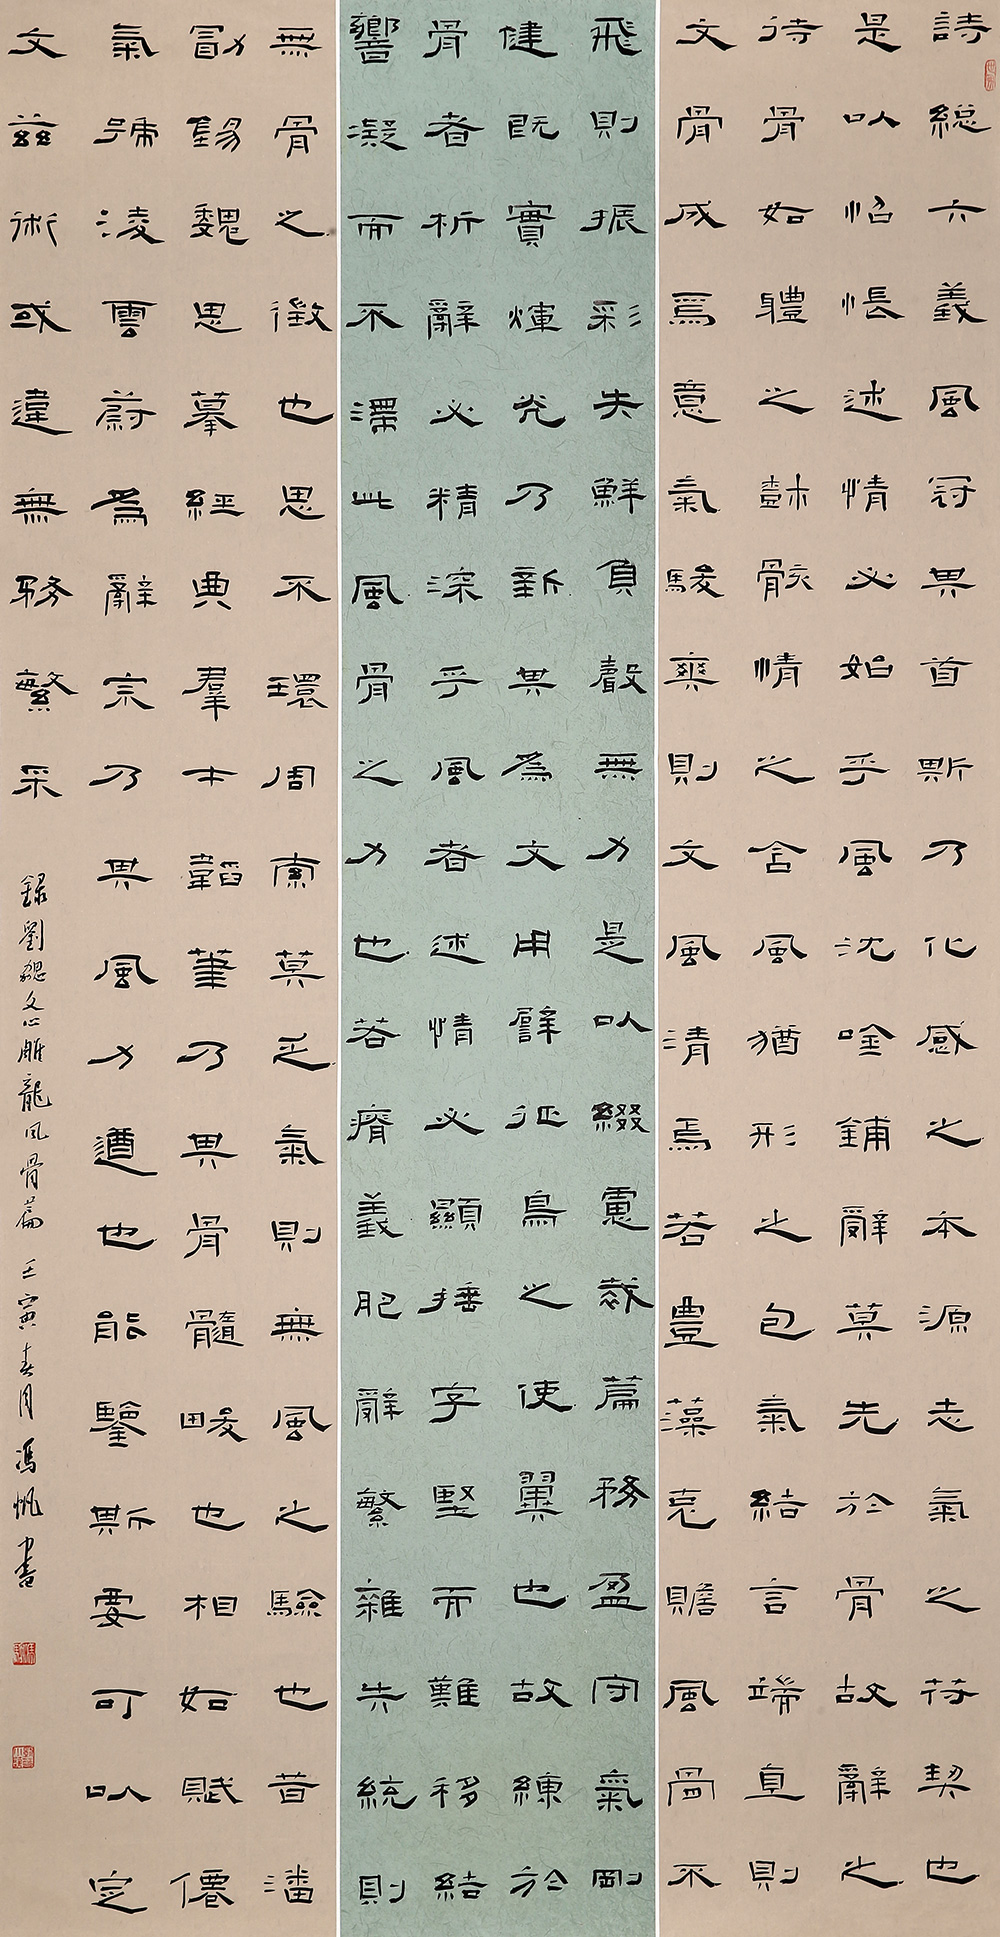 詩總六義風冠其首斯乃化感之本源志氣之符契也
是以怊悵述情必始乎風沈吟鋪辭莫先於骨故辭之
待骨如體之樹骸情之含風猶形之包氣結言端直則
文骨成焉意氣駿爽則文風清焉若豐藻克贍風骨不
飛則振彩失鮮負聲無力是以綴慮裁篇務盈守氣剛
健既實煇光乃新其為文用譬征鳥之使翼也故練於
骨者析辭必精深乎風者述情必顯捶字堅而難移結
響凝而不滯此風骨之力也若瘠義肥辭繁雜失統則
無骨之徵也思不環周索莫乏氣則無風之驗也昔潘
勖錫魏思摹經典羣才韜筆乃其骨髓畯也相如賦僊
氣號淩雲蔚為辭宗乃其風力遒也能鑒斯要可以定
文茲術或違無務繁采
錄劉勰文心雕龍風骨篇 壬寅春月 馮帆書